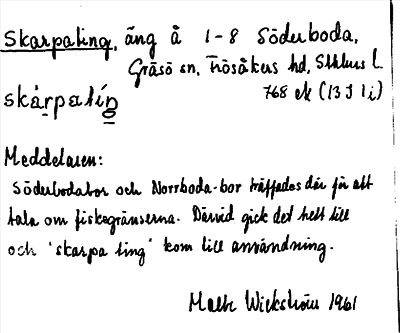 Skarpaling, äng å 1-8 Söderboda,
Gräsö sn, Frösåkers hd, Sthlms l.
768 ek (13 J 1 i)
skárpalíŋ
Meddelaren:
Söderbodabor och Norrboda-bor träffades där för att
tala om fiskegränserna. Därvid gick det hett till
och 'skarpa ting' kom till användning.
Mats Wickström 1961